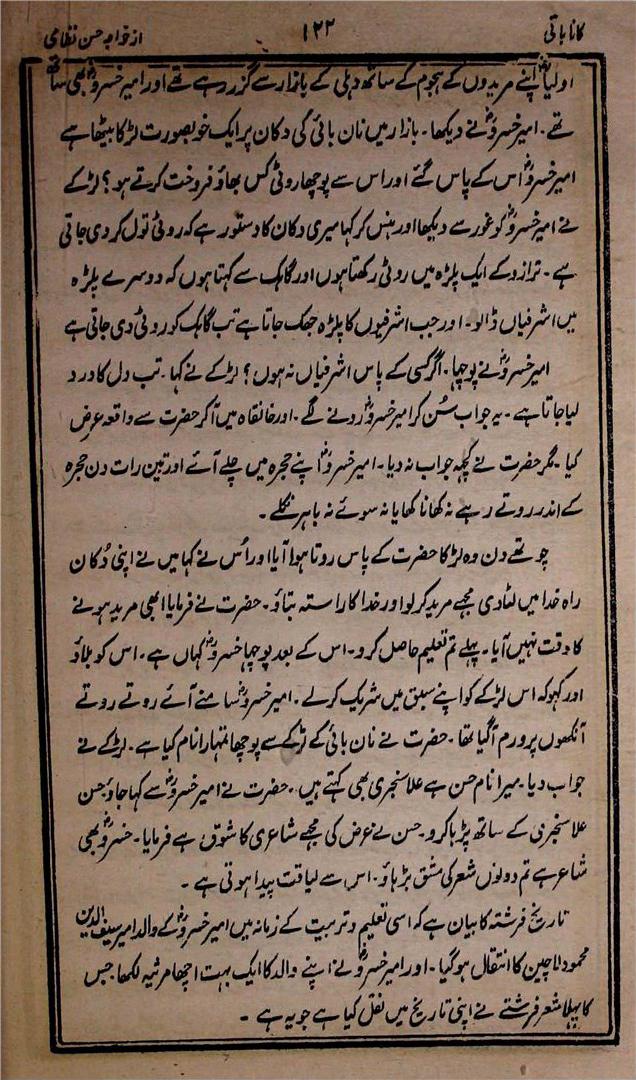 کانا باتی ۱۲۲ از خواجہ حسن نظامی
اولیاؒ اپنے مریدوں کے ہجوم کے ساتھ دہلی کے بازار سے گزر رہے تھے اور امیر خسروؒ بھی ساتھ
تھے۔ امیر خسروؒ نے دیکھا۔ بازار میں نان بائی کی دکان پر ایک خوبصورت لڑکا بیٹھا ہے
امیر خسروؒ اس کے پاس گئے اور اس سے پوچھا روٹی کس بھاؤ فروخت کرتے ہو؟ لڑکے
نے امیر خسروؒ کو غور سے دیکھا اور ہنس کر کہا میری دکان کا دستور ہے کہ روٹی تول کر دی جاتی
ہے۔ ترازو کے ایک پلڑہ میں روٹی رکھتا ہوں اور گاہک سے کہتا ہوں کہ دوسرے پلڑہ
میں اشرفیاں ڈالو۔ اور جب اشرفیوں کا پلڑہ جھک جاتا ہے تب گاہک کو روٹی دی جاتی ہے
امیر خسروؒ نے پوچھا۔ اگر کسی کے پاس اشرفیاں نہ ہوں؟ لڑکے نے کہا۔ تب دل کا درد
لیا جاتا ہے۔ یہ جواب سُن کر امیر خسروؒ رونے لگے۔ اور خانقاہ میں آکر حضرت سے واقعہ عرض
کیا۔ مگر حضرت نے کچھ جواب نہ دیا۔ امیر خسروؒ اپنے حجرہ میں چلے آئے اور تین رات دن حجرہ
کے اندر روتے رہے نہ کھانا کھایا نہ سوئے نہ باہر نکلے۔
چوتھے دن وہ لڑکا حضرت کے پاس روتا ہوا آیا اور اُس نے کہا میں نے اپنی دُکان
راہ خدا میں لٹا دی مجھے مرید کر لو اور خدا کا راستہ بتاؤ۔ حضرت نے فرمایا ابھی مرید ہونے
کا وقت نہیں آیا۔ پہلے تم تعلیم حاصل کرو۔ اس کے بعد پوچھا خسروؒ کہاں ہے۔ اس کو بلاؤ
اور کہو کہ اس لڑکے کو اپنے سبق میں شریک کر لے۔ امیر خسروؒ سامنے آئے روتے روتے
آنکھوں پر ورم آ گیا تھا۔ حضرت نے نان بائی کے لڑکے سے پوچھا تمہارا نام کیا ہے۔ لڑکے نے
جواب دیا۔ میرا نام حسن ہے علا سنجری بھی کہتے ہیں۔ حضرت نے امیر خسروؒ سے کہا جاؤ حسن
علا سنجری کے ساتھ پڑہا کرو۔ حسن نے عرض کی مجھے شاعری کا شوق ہے فرمایا۔ خسروؒ بھی
شاعر ہے تم دونوں شعر کی مشق بڑہاؤ۔ اس سے لیاقت پیدا ہوتی ہے۔
تاریخ فرشتہ کا بیان ہے کہ اسی تعلیم و تربیت کے زمانہ میں امیر خسروؒ کے والد امیر سیف الدین
محمود لاچین کا انتقال ہو گیا۔ اور امیر خسروؒ نے اپنے والد کا ایک بہت اچھا مرثیہ لکھا۔ جس
کا پہلا شعر فرشتے نے اپنی تاریخ میں نقل کیا ہے جو یہ ہے۔